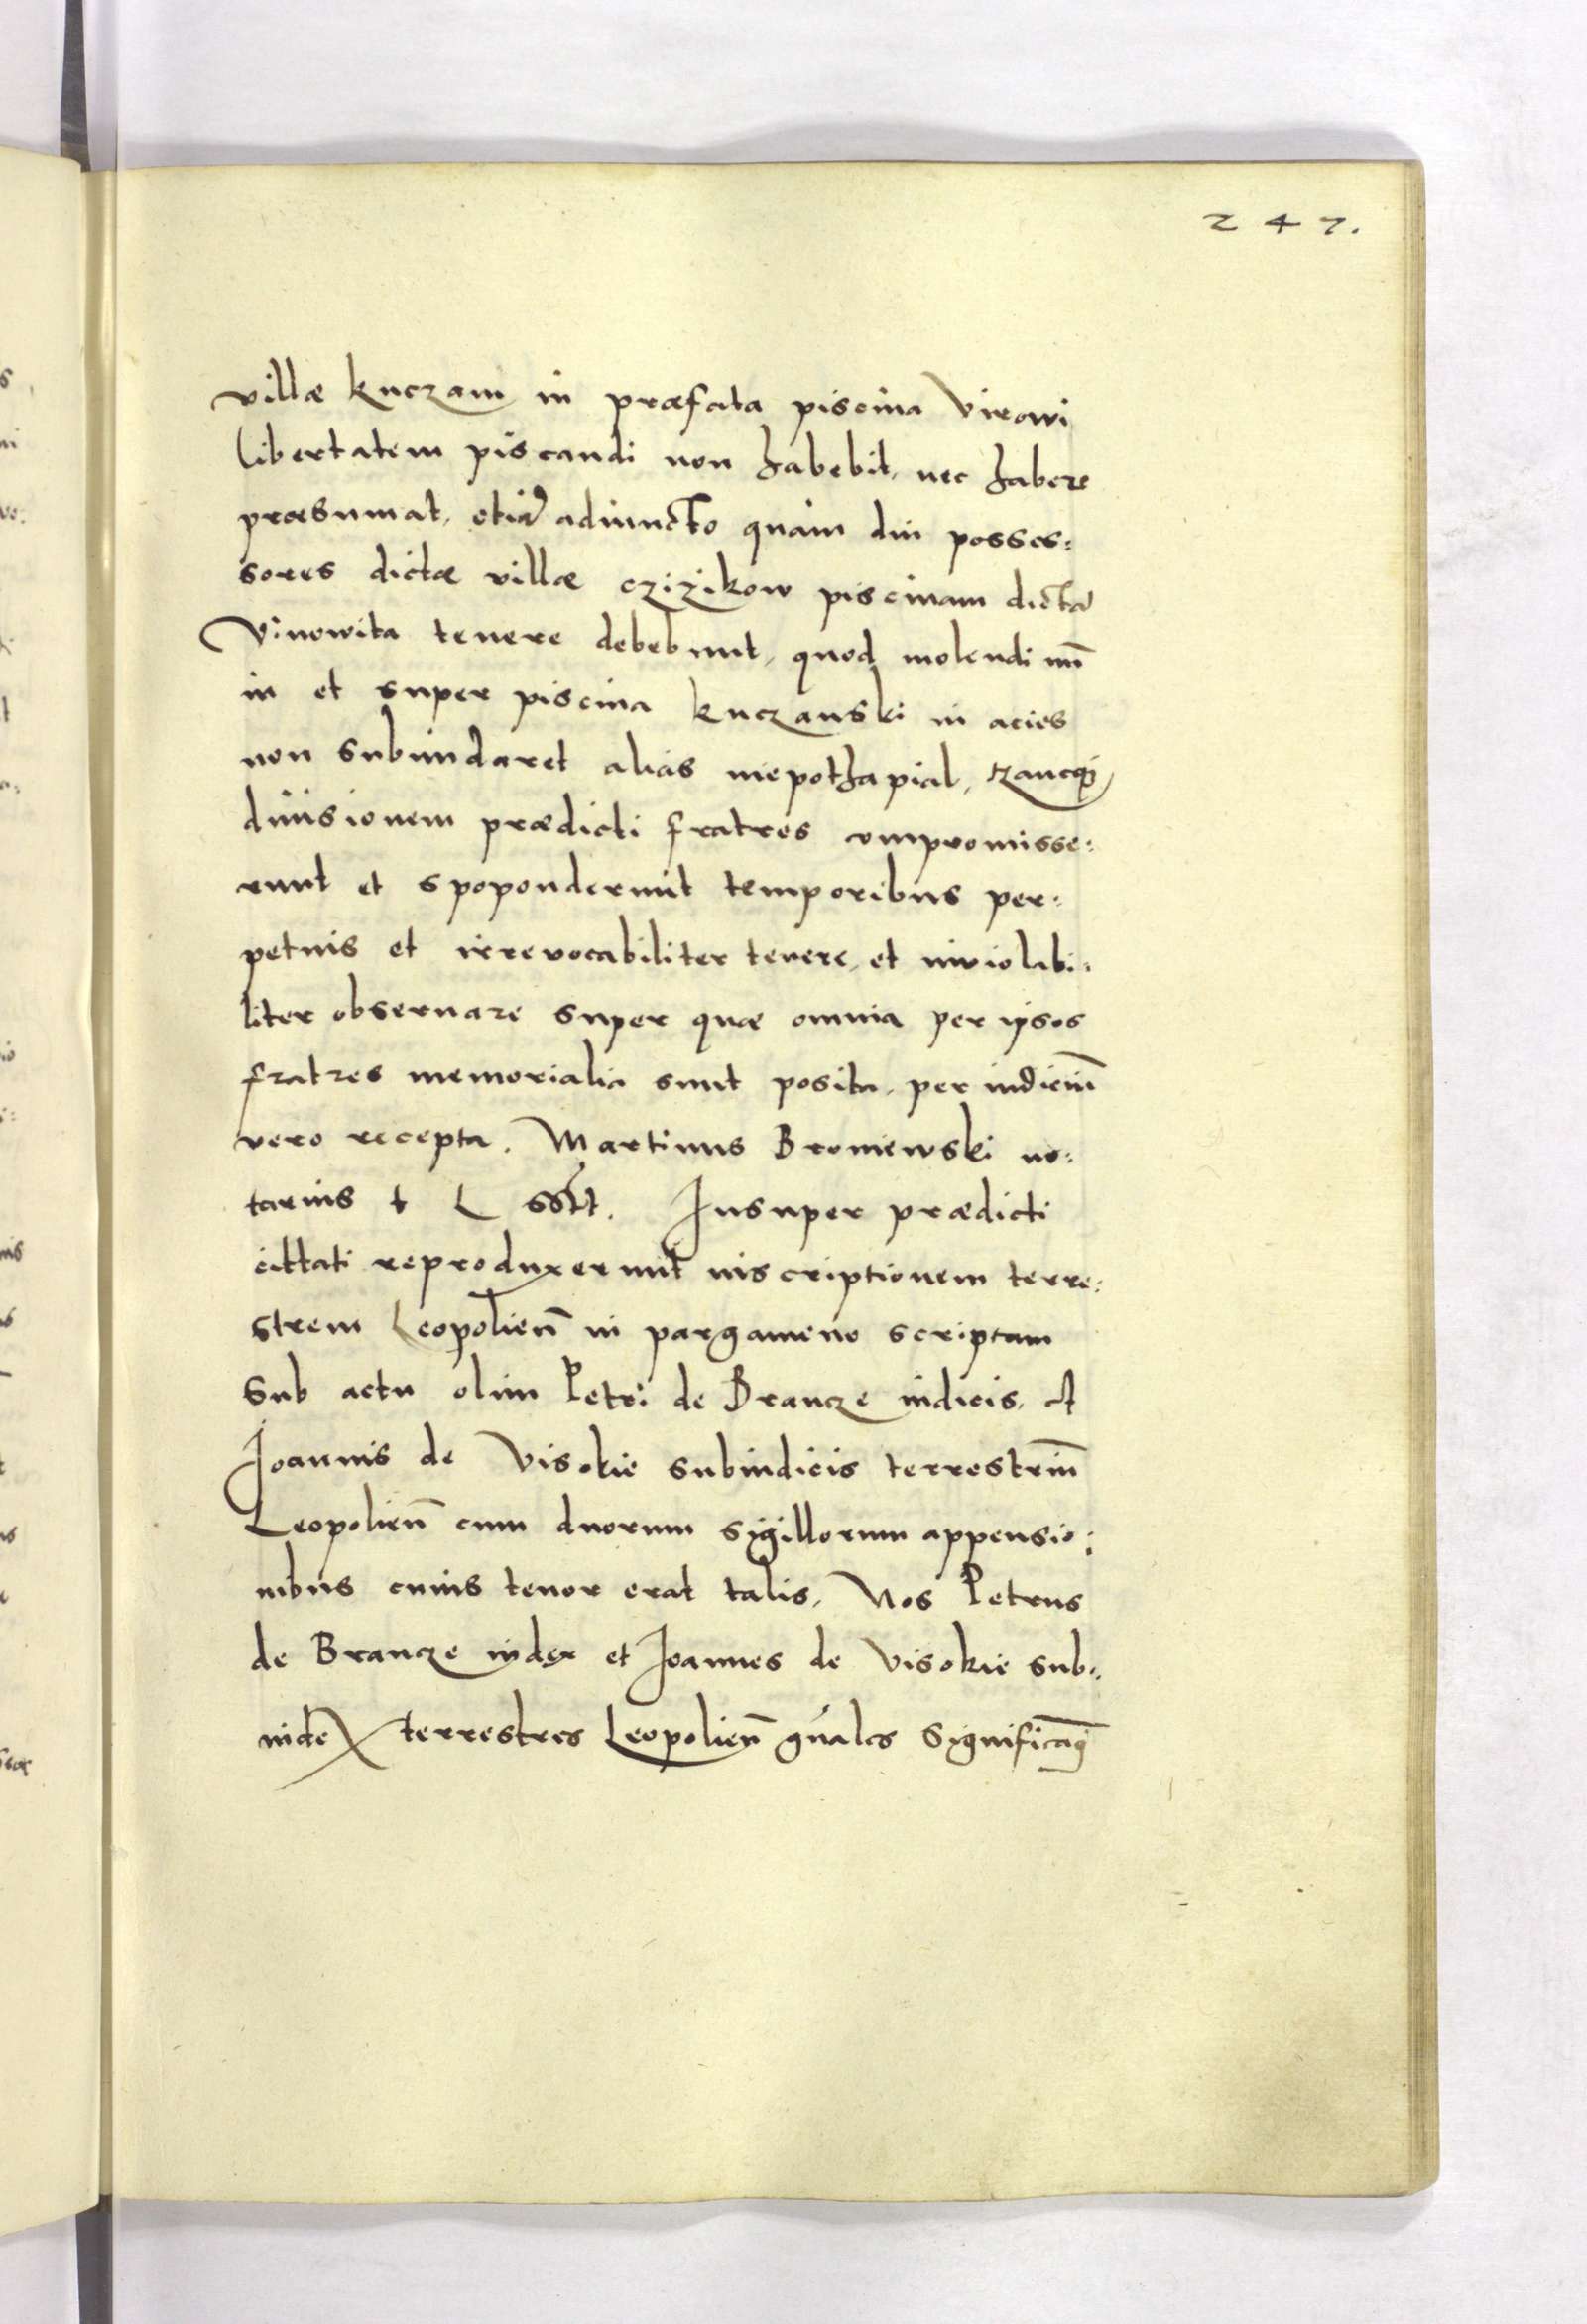 247.
villæ kuczam in præfata piscina Virowi
libertatem piscandi non habebit, nec habere
præsumat, etiā adiuncto quam diu posses:
sores dictæ villæ czizikow piscinam dictā
Virowita tenere debebunt, quod molendinū
in et super piscina kuczanski in acies
non subundaret alias niepothapial,
diuisionem prædicti fratres compromisse:
runt et spoponderunt temporibus per:
petuis et irreuocabiliter tenere, et inuiolabi:
liter obseruare super quæ omnia per ipsos
fratres memorialia sunt posita, per iudiciū
vero recepta. Martinus Broniewski no:
tarius t L sšt. Insuper prædicti
cittati reproduxerunt inscriptionem terre:
strem Leopolień in pargameno scriptam
sub actu olim Petri de Brancze iudicis, et
Joannis de Visokie subiudicis terrestriū
Leopolień cum duorum sigillorum appensio:
nibus cuius tenor erat talis, Nos Petrus
de Brancze iudex et Joannes de Visokie sub:
iudex terrestres Leopolień gńales Significaq̄